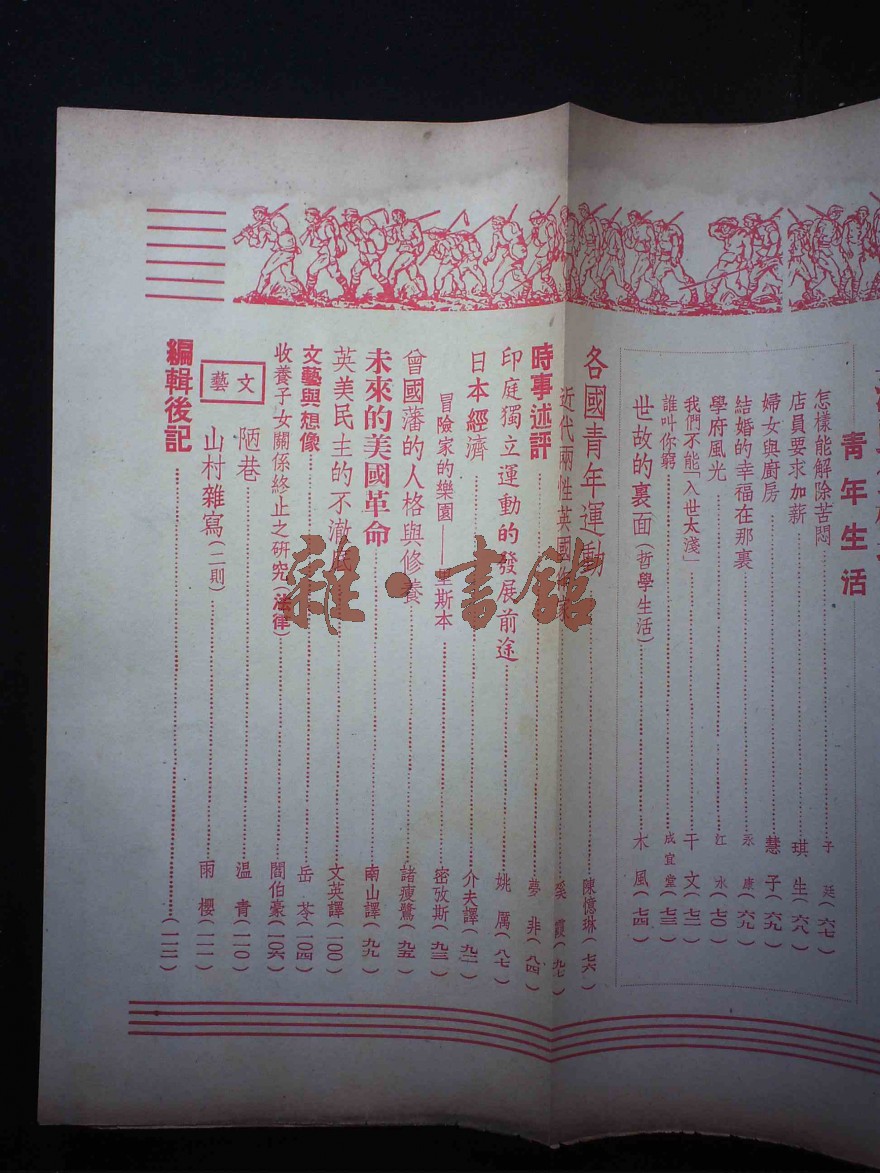 青年生活
怎樣能解除苦悶 子廷(六七)
店員要求加薪 琪生(六八)
婦女與廚房 慧子(六九)
結婚的幸福在那裏 永康(六九)
學府風光 紅水(七〇)
我們不能「入世太淺」 干文(七二)
誰叫你窮 成宜堂(七三)
世故的裏面(哲學生活) 木風(七四)
各國青年運動 陳憶琳(七六)
近代兩性英國
時事述評 夢非(八四)
印庭獨立運動的發展前途 姚厲(八七)
日本經濟 介夫譯(九二)
冒險家的樂園——里斯本 密攷斯(九三)
曾國藩的人格與修養 諸瘦鷺(九五)
未來的美國革命 南山譯(九九)
英美民主的不澈底 文英譯(一〇〇)
文藝與想像 岳苓(一〇四)
收養子女關係終止之研究(法律) 閻伯豪(一〇六)
文藝
陋巷 温青(一一〇)
山村雜寫(二則) 雨櫻(一一一)
編輯後記 (一一二)
雜·書館